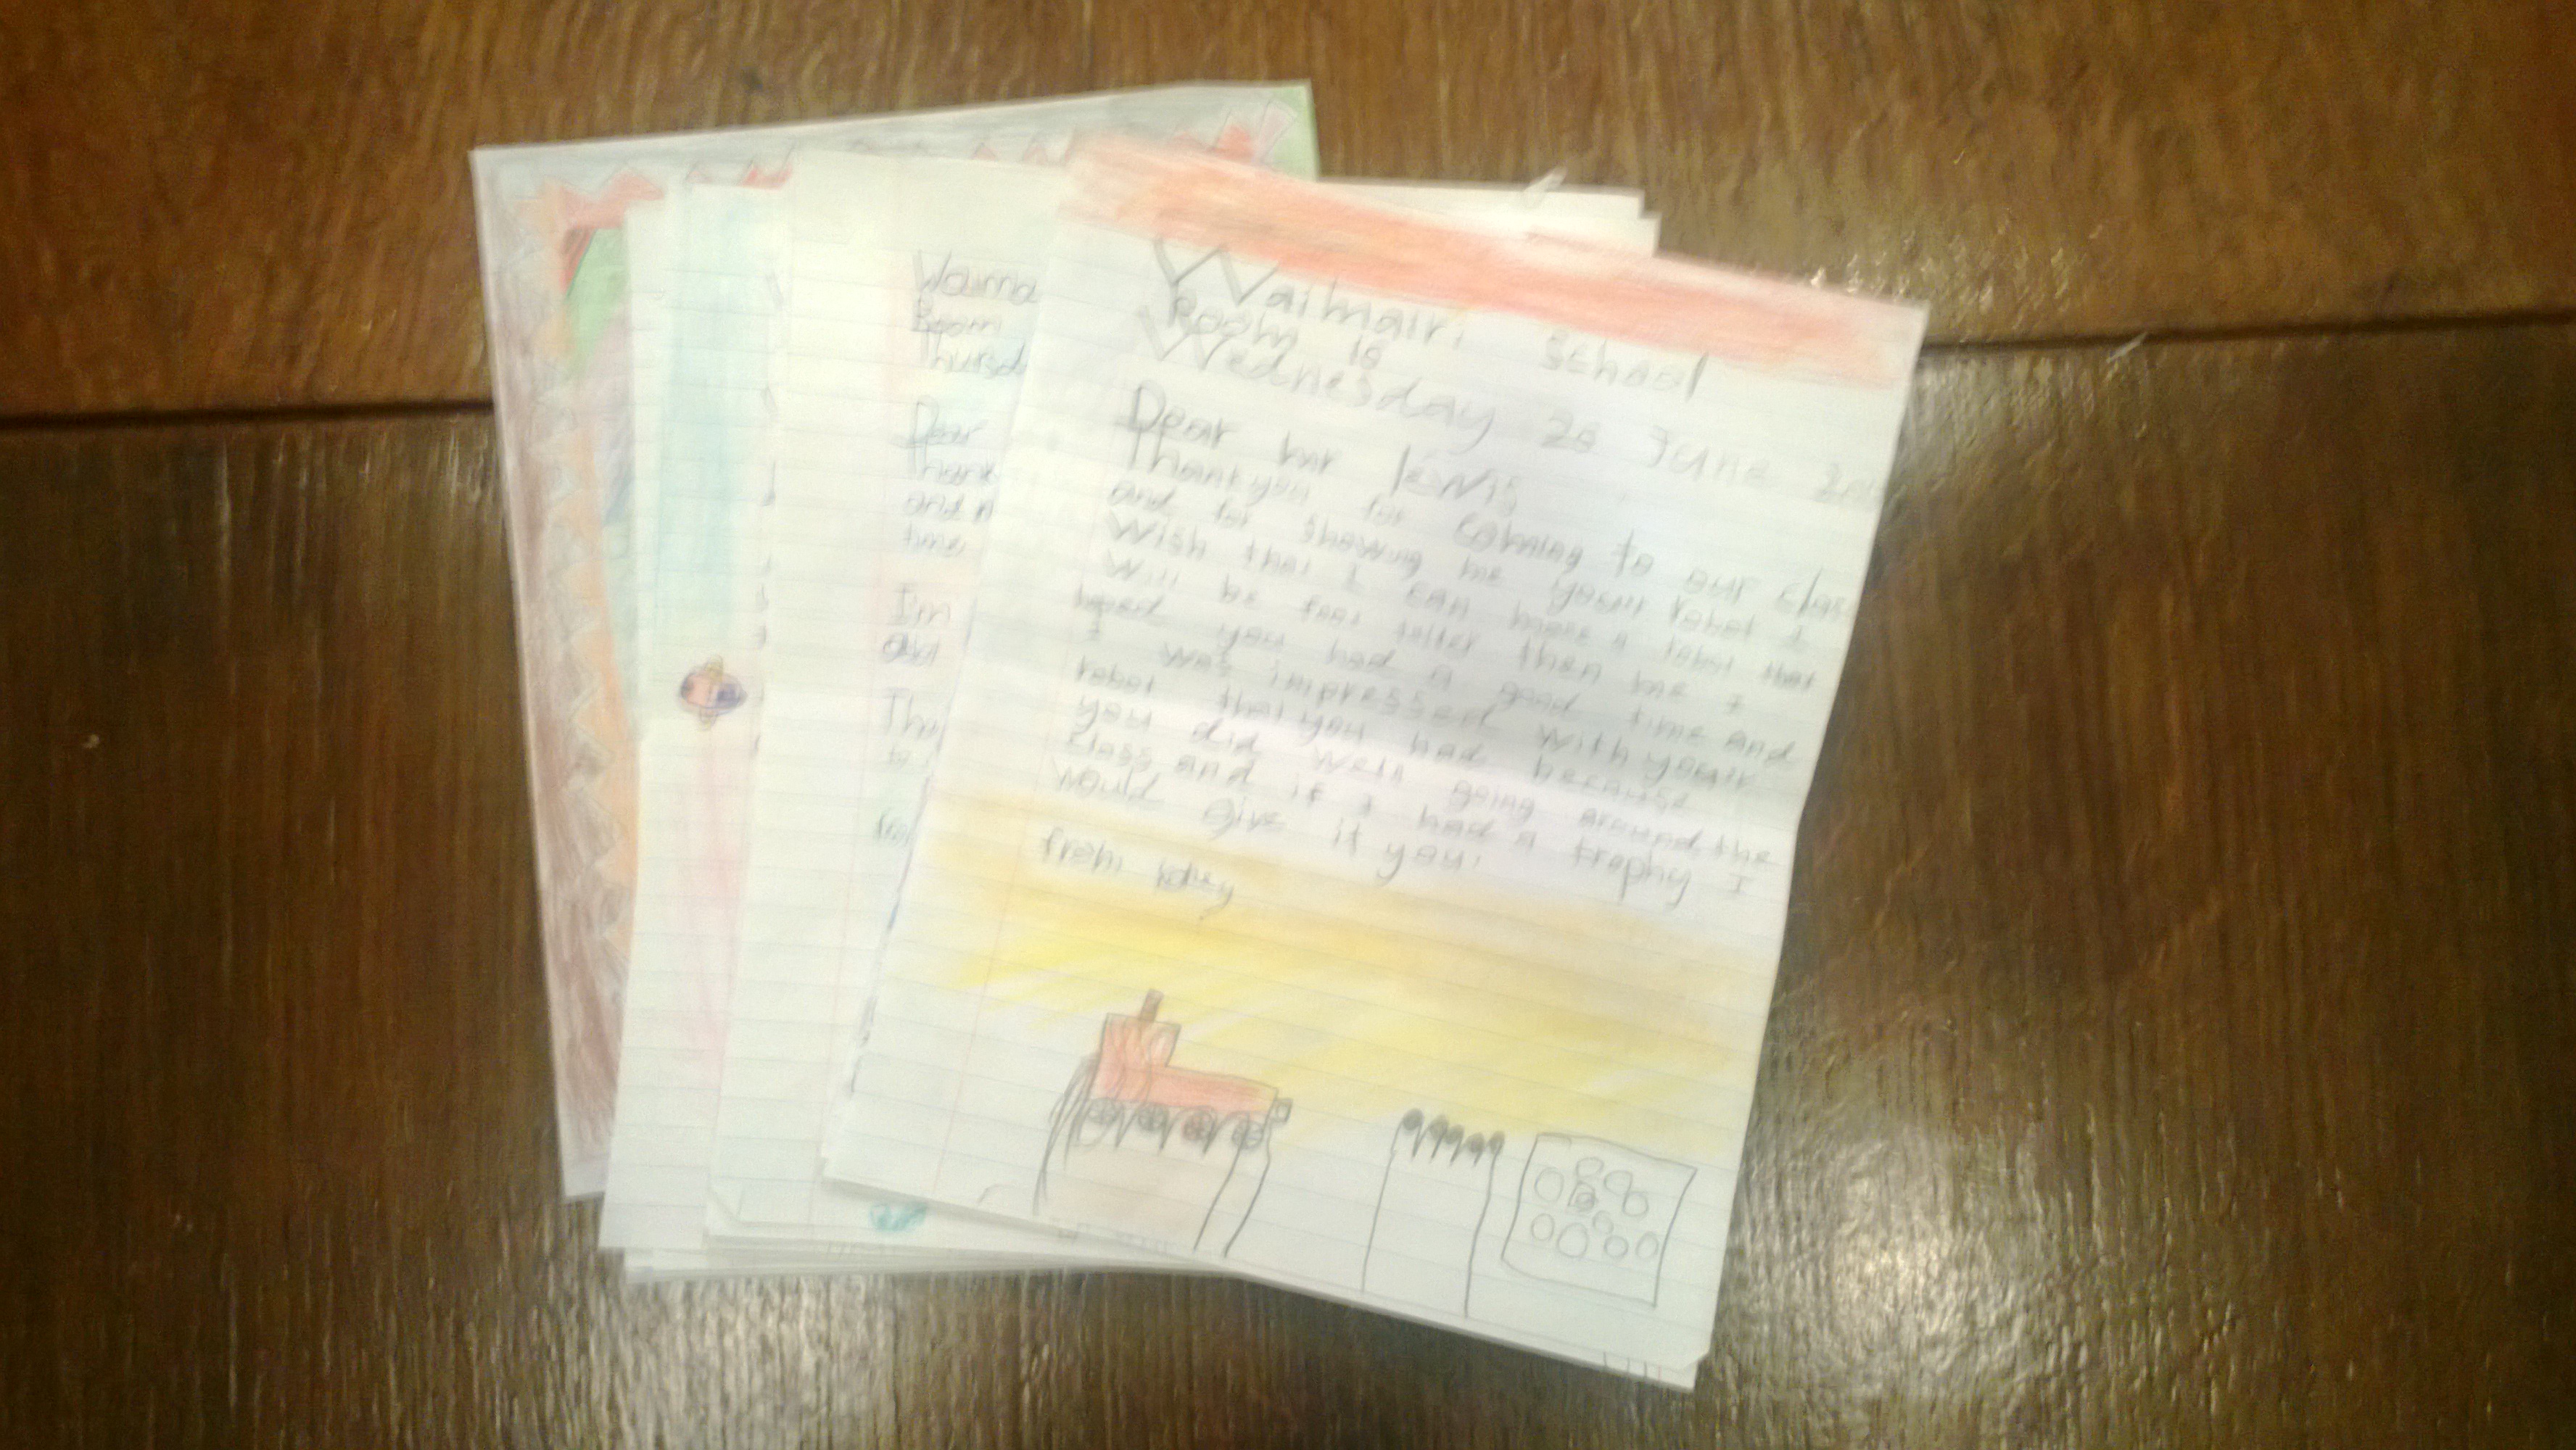 Waimairi School
Room 16
Wednesday 20 June
Dear mr lewis
Thankyou for coming to our class
and for showing me your robot I
Wish that I can make a robot that
will be feet taller then me I
hoped you had a good time and
I was impressed with your
robot that you had because
you did well going around the
class and if I had a trophy I
would give it you!
from
Waima
Room
Thursd
Dear
Thank
and
time
I'm
Tha
to